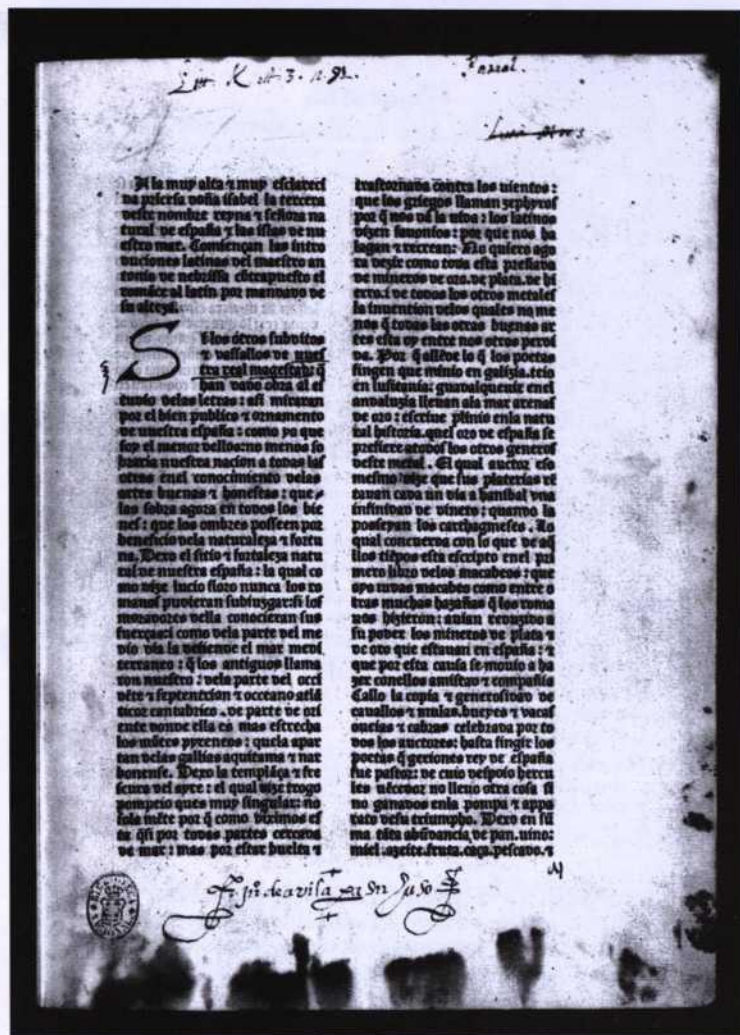 A la muy alta ⁊ muy esclareci
da pricesa doña isabel la tercera
deste nombre reyna ⁊ señora na
tural de españa ⁊ las islas de nu
estro mar. Comiençan las intro
duciones latinas del maestro an
tonio de nebrissa cōtrapuesto el
romāce al latin por mandado de
su alteza.
SI los otros subditos
⁊ vassallos de vues
tra real magestad: q̄
han dado obra al es
tudio delas letras: assi miraran
por el bien publico ⁊ ornamento
de nuestra españa: como yo que
soy el menor dellos: no menos so
braria nuestra nacion a todas las
otras enel conocimiento delas
artes buenas ⁊ honestas: que
las sobra agora en todos los bie
nes: que los ombres posseen por
beneficio dela naturaleza ⁊ fortu
na. Dexo el sitio ⁊ fortaleza natu
ral de nuestra españa: la qual co
mo dize lucio floro nunca los ro
manos pudieran subiuzgar: si los
moradores della conocieran sus
fuerças: como dela parte del me
dio dia la defiende el mar medi
terraneo: q̄ los antiguos llama
ron nuestro: dela parte del occi
dēte ⁊ septentrion el occeano atlā
tico ⁊ cantabrico. de parte de ori
ente donde ella es mas estrecha
los mōtes pyreneos: quela apar
tan delas gallias aquitania ⁊ nar
bonense. Dexo la templāça ⁊ fre
scura del ayre: el qual dize trogo
pompeio ques muy singular: no
sola mēte por q̄ como diximos es
ta q̄si por todas partes cercada
de mar: mas por estar buelta ⁊
trastornada contra los vientos:
que los griegos llaman zephyros
por q̄ nos dā la vida: los latinos
dizen fauonios: por que nos ha
lagan ⁊ recrean: No quiero ago
ra dezir como toda esta preñada
de mineros de oro. de plata. de hi
erro. ⁊ de todos los otros metales
la inuention delos quales no me
nos q̄ todas las otras buenas ar
tes esta oy entre nos otros perdi
da. Por q̄ allēde lo q̄ los poetas
fingen que minio en galizia. teio
en lusitania: guadalqueuir enel
andaluzia lleuan ala mar arenas
de oro: escriue plinio enla natu
ral historia. quel oro de españa se
prefiere a todos los otros generos
deste metal. El qual auctor eso
mesmo dize que sus platerias rē
tauan cada un dia a hanibal vna
infinidad de dinero: quando la
posseyan los carthagineses. Lo
qual concuerda con lo que de aq̄
llos tiēpos esta escripto enel pri
mero libro delos macabeos: que
oyo iudas macabeo como entre o
tras muchas hazañas q̄ los roma
nos hizieron: auian reduzido a
su poder los mineros de plata ⁊
de oro que estauan en españa: ⁊
que por esta causa se mouio a ha
zer conellos amistad ⁊ compañia
Callo la copia ⁊ generosidad de
cauallos ⁊ mulas. bueyes ⁊ vacas
ouejas ⁊ cabras celebrada por to
dos los auctores: hasta fingir los
poetas q̄ geriones rey de españa
fue pastor: de cuio despoio hercu
les vēcedor no lleuo otra cosa si
no ganados enla pompa ⁊ appa
rato desu triumpho. Dexo en sū
ma tāta abūdancia de pan. vino:
miel. azeite. fruta. caça. pescado. ⁊